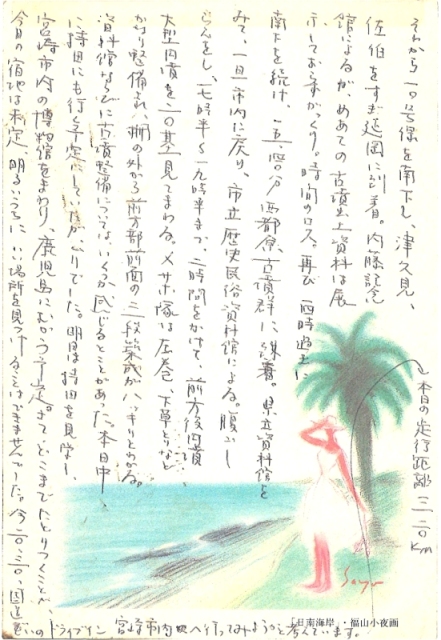 それから一〇号線を南下し、津久見、
佐伯をすぎ延岡に到着。内藤記念
館によるが、めあての古墳出土資料は展
示しておらずがっくり。時間のロス。再び 四時過ぎに
南下を続け、一五・四〇分 西都原古墳群に 線着。県立資料館を
みて、一旦市内に戻り、市立歴史民俗資料館による。腹ごし
らえをし、一七時半〜一九時半まで、二時間をかけて、前方後円墳
大型円墳を二〇基見てまわる。メサホ塚は圧巻、下草などな
かなり整備され、棚の外から前方部前面の三段築成がハッキリとわかる。
資料館ならびに古墳整備についてはいくつか感じるところがあった。本日中
に持田にも行く予定にしていたがムリでした。明日は持田を見学し、
宮崎市内の博物館をまわり、鹿児島にむかう予定。さてどこまでたどりつくことか。
今日の宿地は未定、明るいうちにいい場所を見つけることはできませんでした。今二〇・三〇、国道
ぞいのドライブイン 宮崎市内 へ行ってみようかと考えています。
本日の走行距離 三二〇km
Sayo
日南海岸 ・福山小夜画